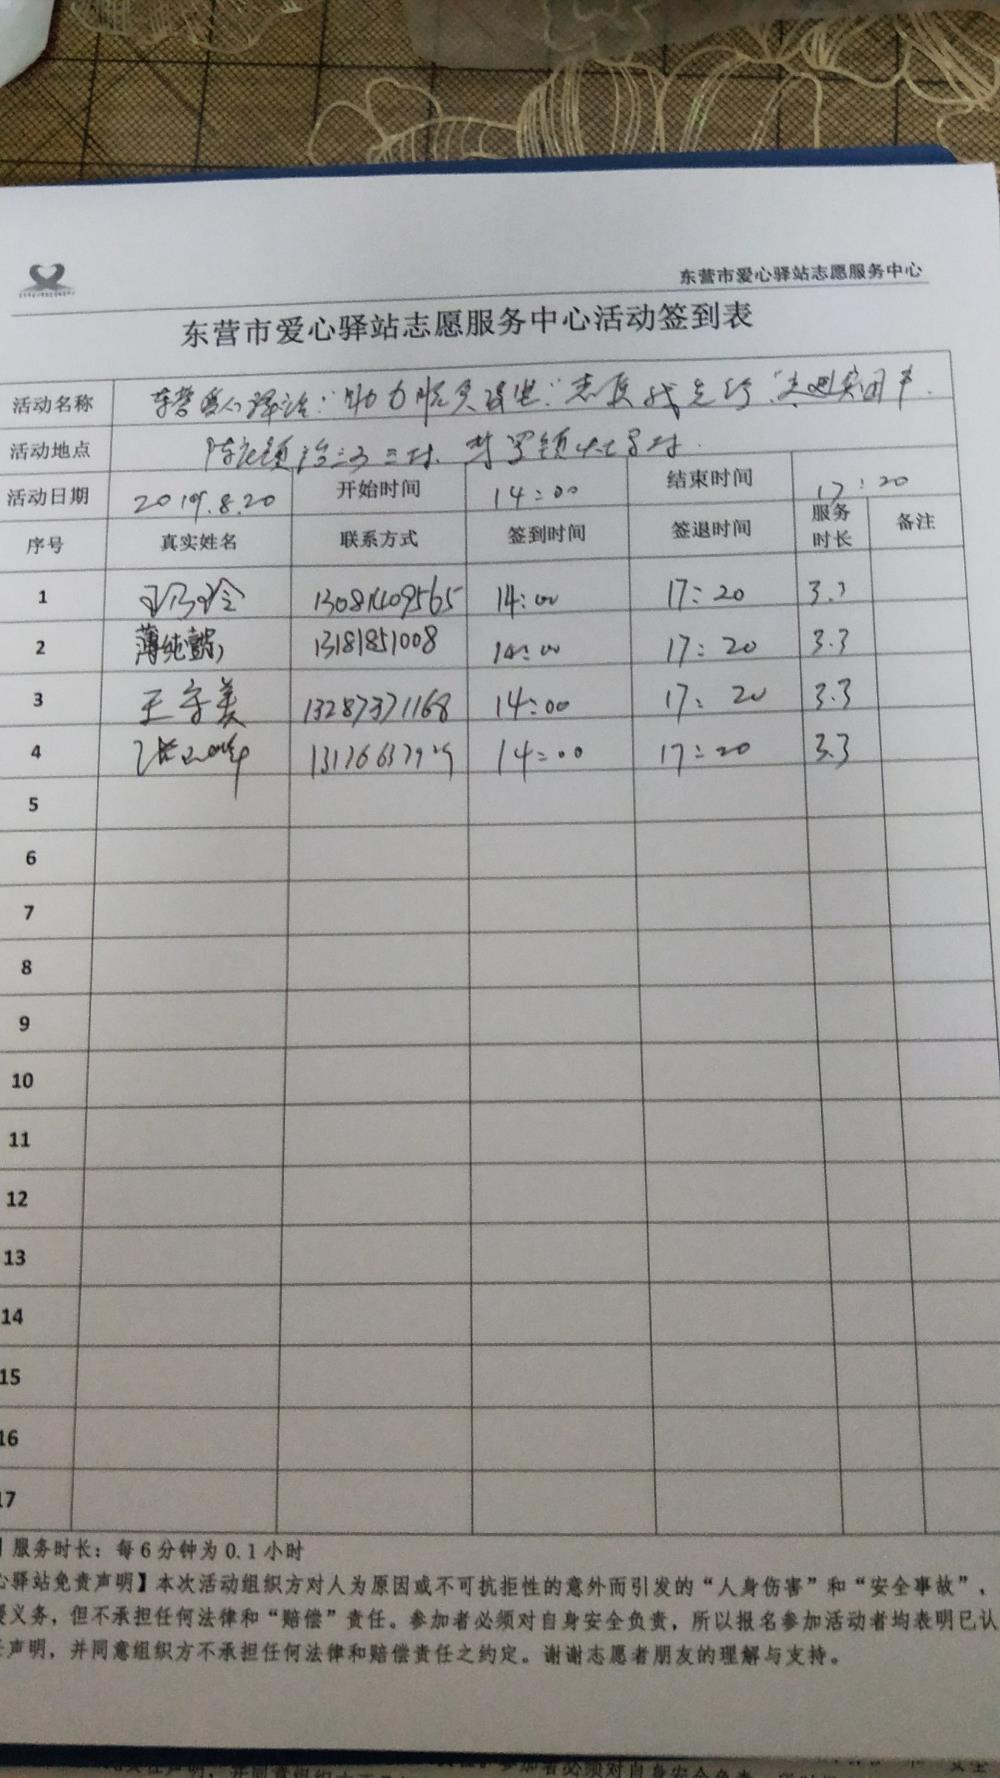 东营市爱心驿站志愿服务中心
东营市爱心驿站志愿服务中心活动签到表
活动名称 东营爱心驿站:“助力脱贫攻坚:志愿我先行”走进贫困户.
活动地点
活动日期 2019.8.20 开始时间 14:00 结束时间 17:20
序号 真实姓名 联系方式 签到时间 签退时间 服务时长 备注
1 13081409565 14:00 17:20 3.3
2 薄纯 13181851008 14:00 17:20 3.3
3 王守美 13287371168 14:00 17:20 3.3
4 14:00 17:20 3.3
5
6
7
8
9
10
11
12
13
14
15
16
17
服务时长：每6分钟为0.1小时
心驿站免责声明】本次活动组织方对人为原因或不可抗拒性的意外而引发的“人身伤害”和“安全事故”，
义务，但不承担任何法律和“赔偿”责任。参加者必须对自身安全负责，所以报名参加活动者均表明已认
声明，并同意组织方不承担任何法律和赔偿责任之约定。谢谢志愿者朋友的理解与支持。